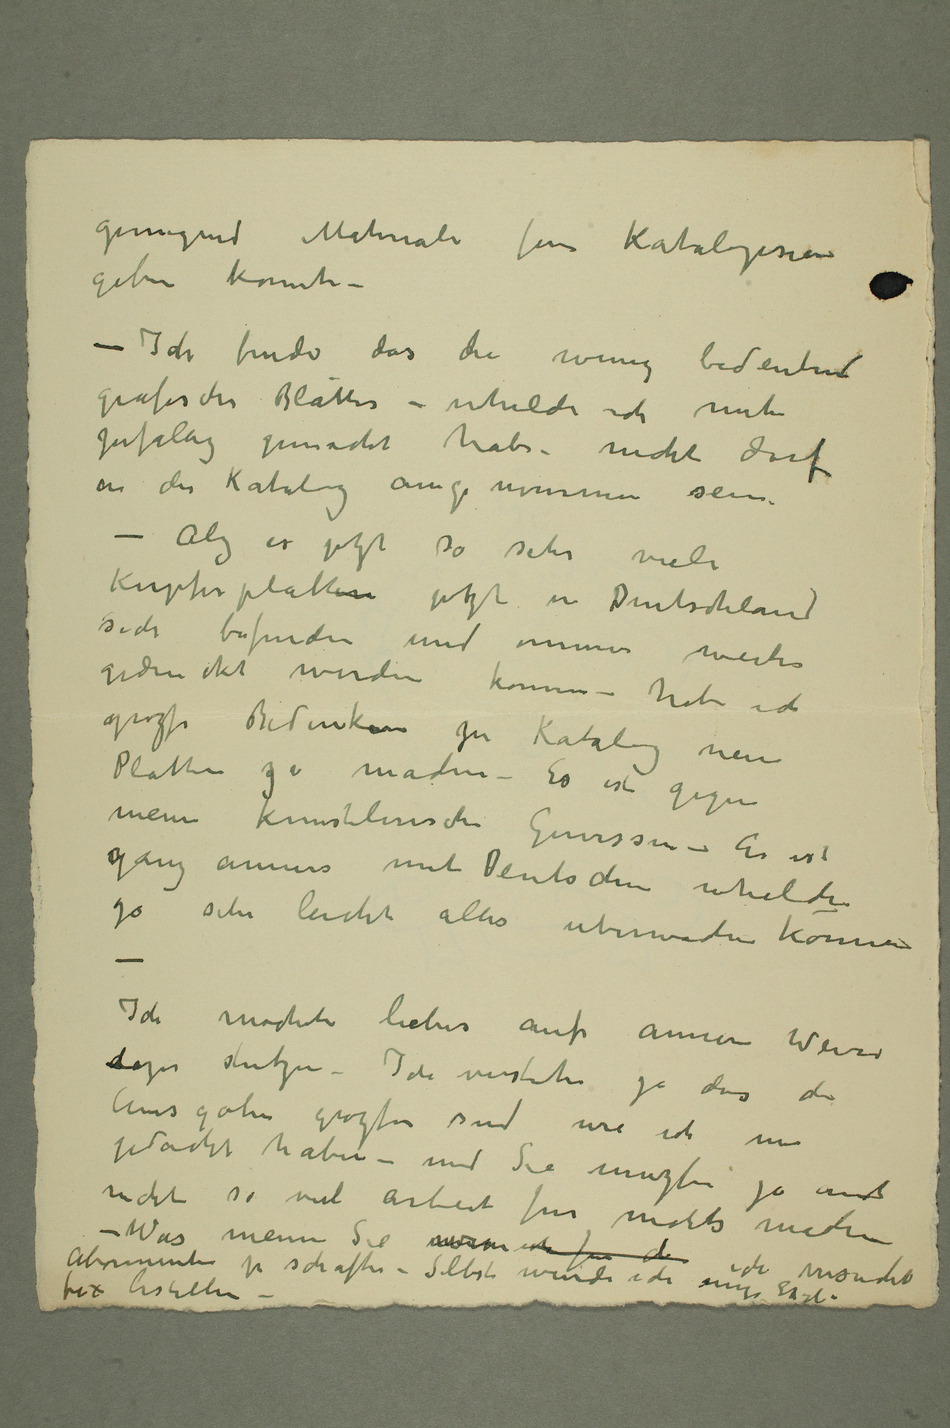 genugend Materiale fur Katalogisieren
geben konnte –
– Ich finde das die wenig bedeutend
grafische Blätter – whelche ich mehr
zufalig gemacht habe – nicht darf
in der Katalog aufgenommen sein.
– Alg es jetzt so sehr viele
Kupferplatten jetzt in Deutschland
sich befinden und immer weiter
gedruckt werden konnen – habe ich
grozse Bedenken zu Katalog neue
Platten zu machen – Es ist gegen
meine kunstlerische Gewissen – Es ist
ganz anners mit Deutschen whelche
ja sehr leicht alles uberwachen können
–
Ich mochte lieber auf annere Weise
dazu stutzen – Ich verstehe ja das die
Ausgaben grozser sind wie ich mir
gedacht haben – und Sie muzsen ja auch
nicht so viel Arbeit fur nichts machen
– Was meinen Sie ich versucht
Abonnenten zu schaffen – Selbst wurde ich einige
fix bestellen –